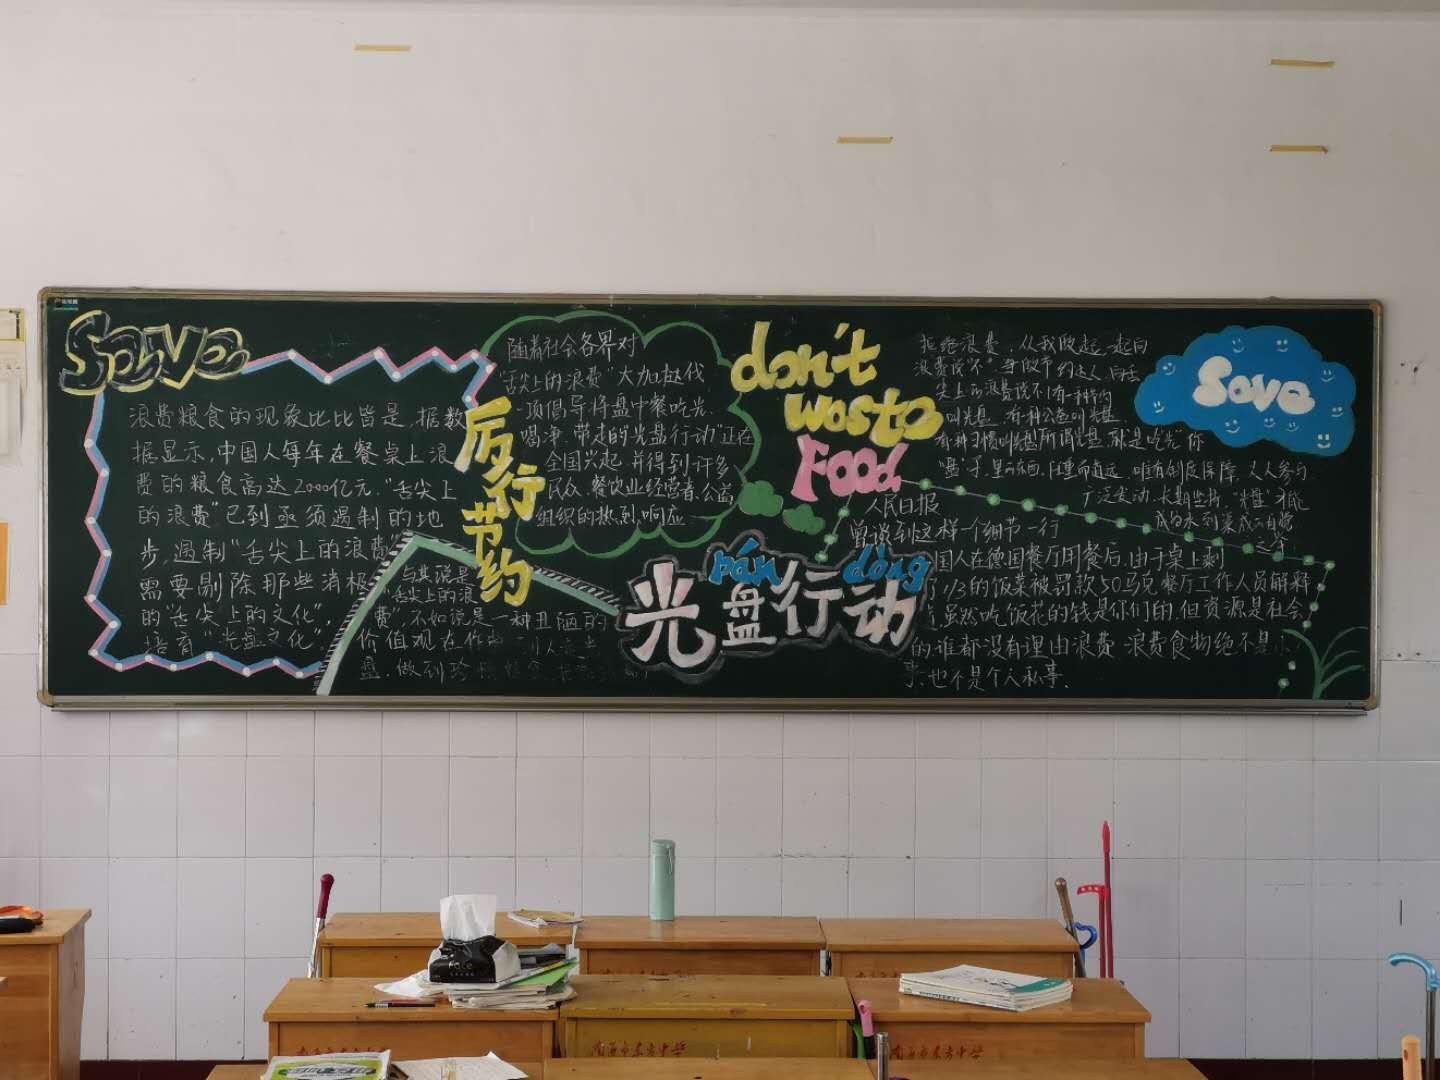 Save
浪费粮食的现象比比皆是,据数
据显示,中国人每年在餐桌上浪
费的粮食高达2000亿元.“舌尖上
的浪费”已到亟须遏制的地
步,遏制“舌尖上的浪费”
需要剔除那些消极
的“舌尖上的文化”,
培育“光盘文化”.
厉行节约
与其说是
“舌尖上的浪
费”,不如说是一种丑陋的
价值观在作
盘,做到珍
随着社会各界对
“舌尖上的浪费”大加挞伐
一项倡导将盘中餐吃光、
喝净、带走的“光盘行动”正在
全国兴起,并得到许多
民众、餐饮业经营者、公益
组织的热烈响应
don't
waste
Food
pán dòng
光盘行动
拒绝浪费,从我做起,一起向
浪费说“不”争做节约达人,向舌
尖上的浪费说不!有一种节约
叫光盘,有种公益叫光盘,
有种习惯叫光盘!所谓光盘,就是吃光你
“盘”子里的东西.任重而道远,唯有制度保障,人人参与
广泛发动,长期坚持,“光盘”才能
成为水到渠成
Save
人民日报
曾谈到这样一个细节一行
国人在德国餐厅用餐后,由于桌上剩
1/3的饭菜被罚款50马克餐厅工作人员解释
虽然吃饭花的钱是你们的,但资源是社会
的谁都没有理由浪费.浪费食物绝不是小
事,也不是个人私事.
Face